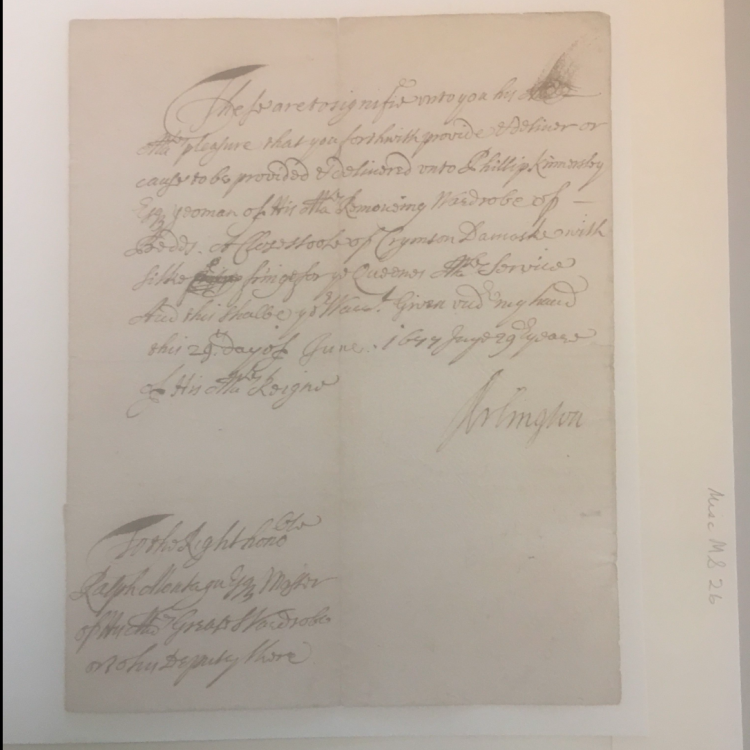 These are to signifie unto you his
Ma:ties pleasure that you forthwith provide & deliver or
cause to be provided & delivered unto Phillip Kinnersley
Esqr yeoman of His Ma:ts Removing Wardrobe of –
Bedds. A Closestoole of Crymson Damaske with
silke fringe for ye Queenes Ma:ts Service
And this shalbe yor Warrt. Given undr my hand
this 29th day of June. 1677 In ye 29th yeare
of His Ma:ts Reigne
Arlington
To the Right honoble
Ralph Montagu Esqr Master
of His Ma:ts Great Wardrobe
or to his Deputy there
Misc MS 26